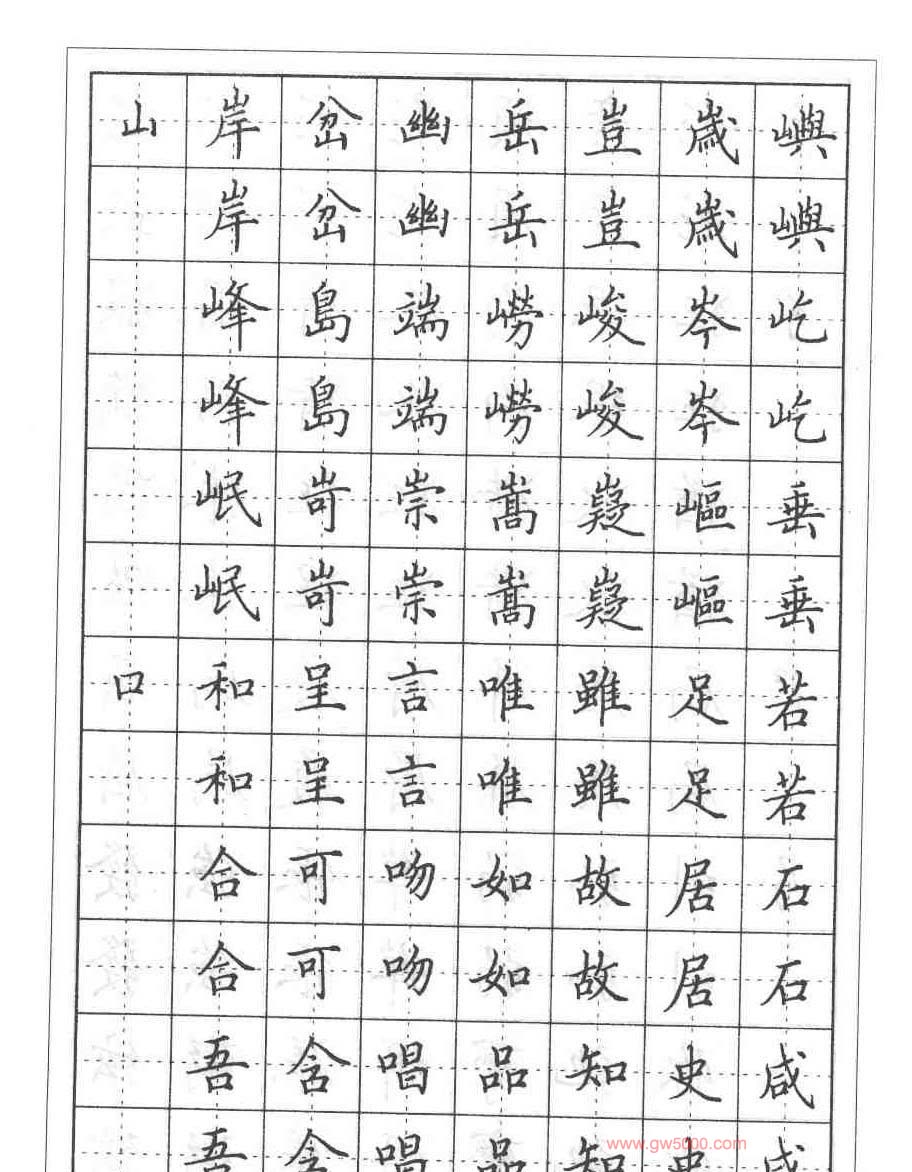 山岸岔幽岳豈歲嶼
岸岔幽岳豈歲嶼
峰島端嶗峻岑屹
峰島端嶗峻岑屹
岷岢崇嵩嶷嶇垂
岷岢崇嵩嶷嶇垂
口和呈言唯雖足若
和呈言唯雖足若
合可吻如故居石
合可吻如故居石
吾含唱品知史咸
吾含唱品知史咸
www.gw5000.com